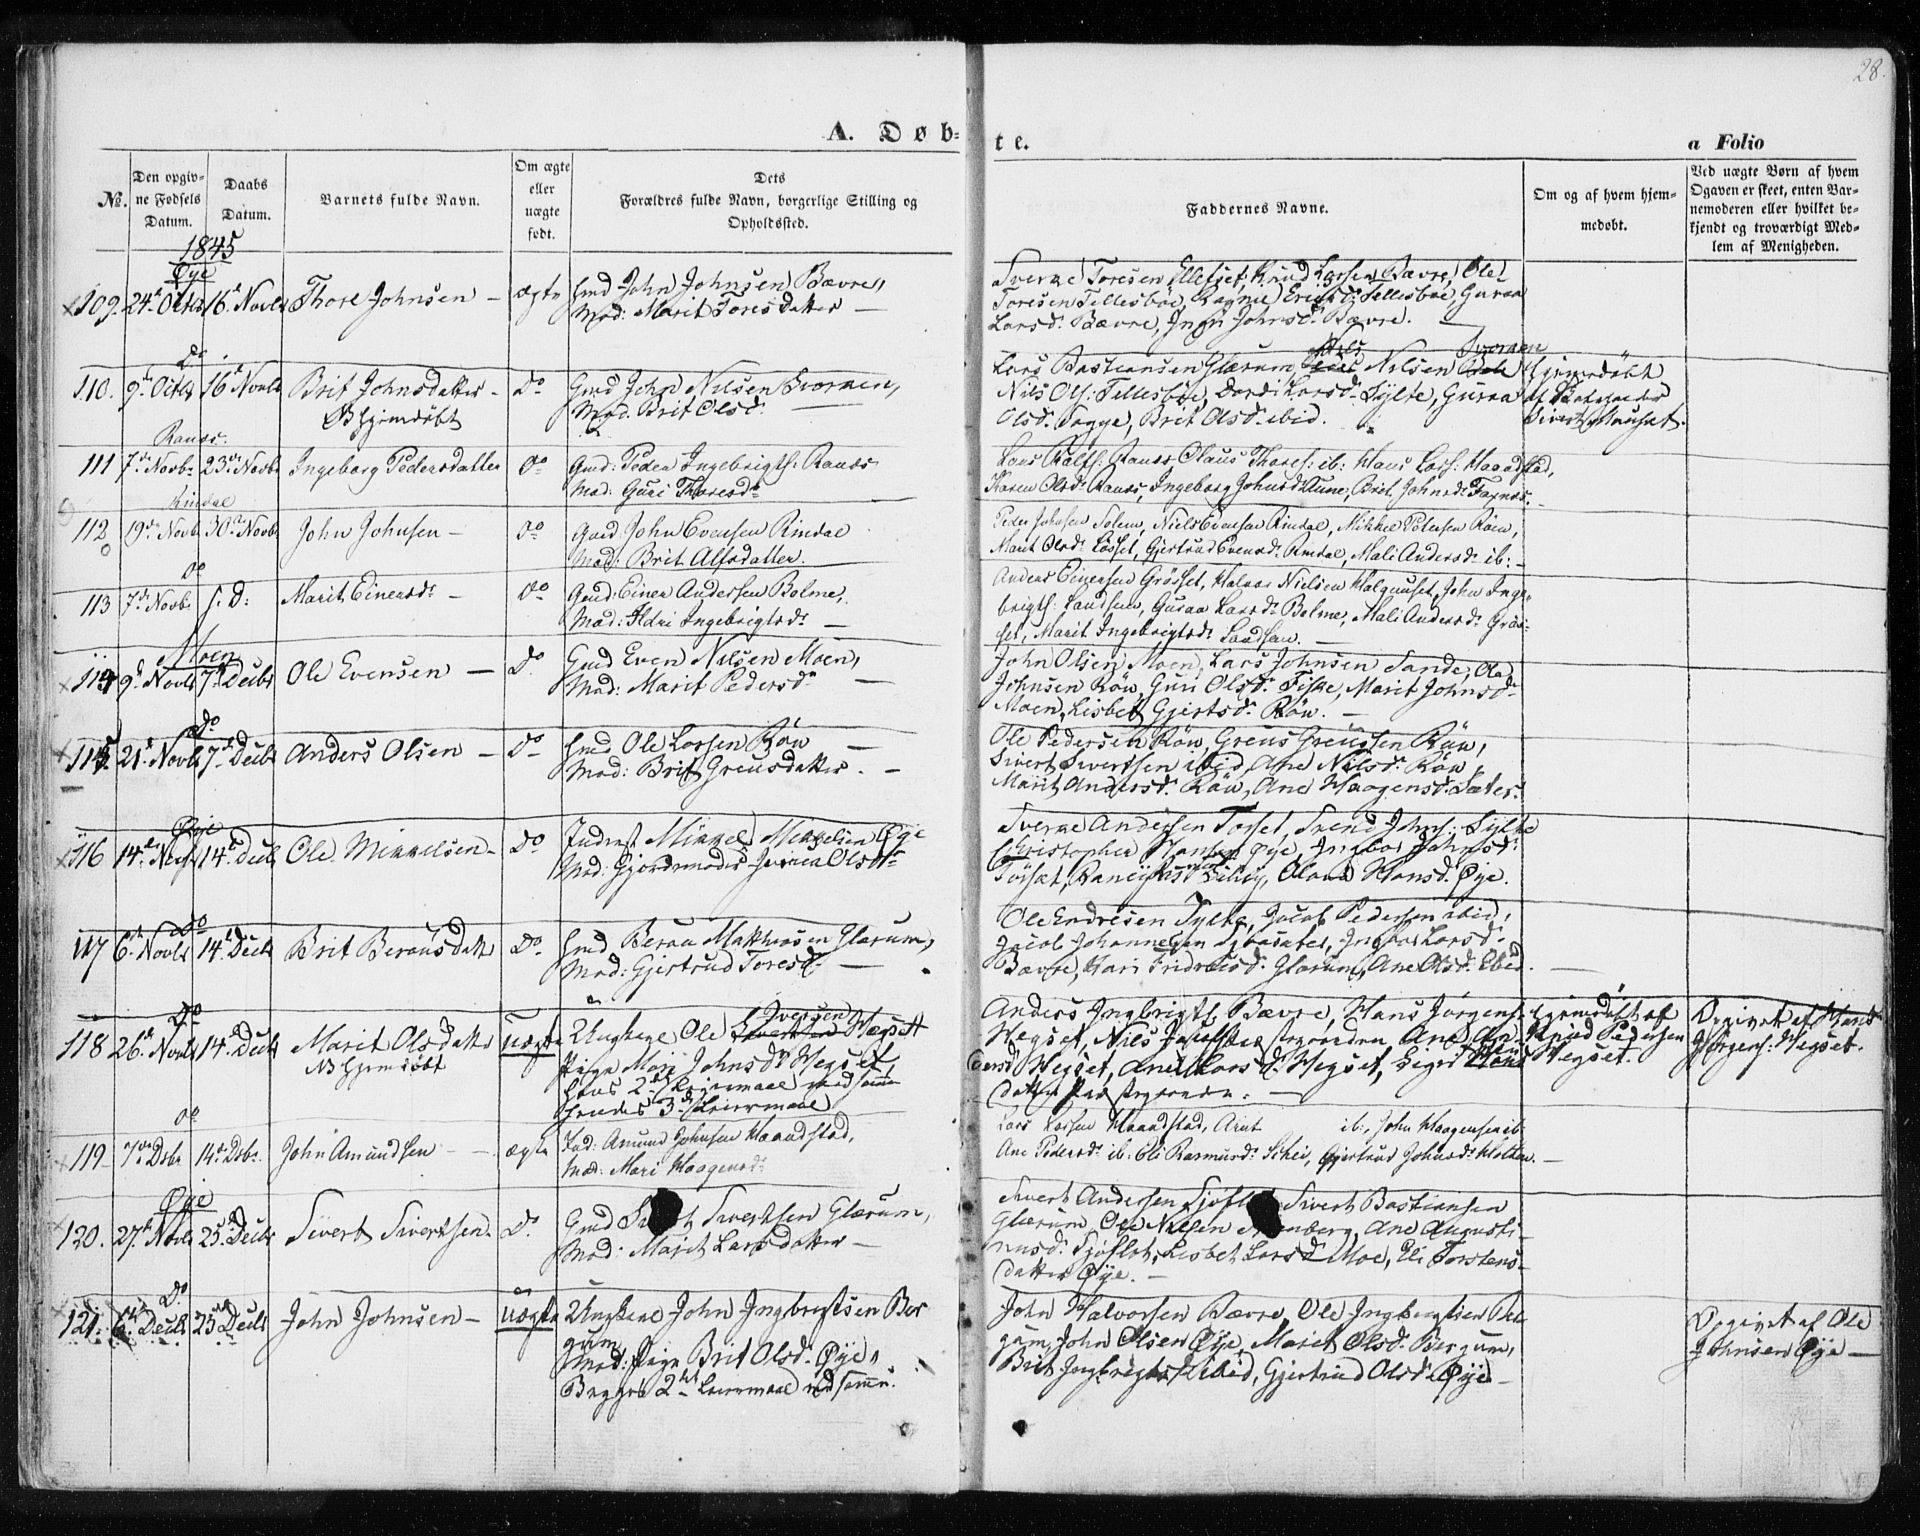 28.
A. Døb-
te.
a Folio
No.
Den opgiv-
ne Fødsels
Datum.
Daabs
Datum.
Barnets fulde Navn.
Om ægte
eller
uægte
født.
Dets
Forældres fulde Navn, borgerlige Stilling og
Opholdssted.
Faddernes Navne.
Om og af hvem hjem-
medøbt.
Ved uægte Børn af hvem
Ogaven er skeet, enten Bar-
nemoderen eller hvilket be-
kjendt og troværdigt Med-
lem af Menigheden.
1845
Øye
109. 24de Octbr 16de Novbr Thore Johnsen – ægte Gmd John Johnsen Bævre,
Mod: Marit Toresdatter —
Sverke Toresen Ellefset, Knud Larsen Bævre, Ole
Toresen Tellesböe, Ragnie Ericsd: Tellesböe, Guraa
Larsd. Bævre, Johnsd. Bævre.
Do
110. 9de Octbr 16de Novbr Brit Johnsdatter – Do Gmd John Nilsen Svormen,
NB Hjemdøbt
Mod. Brit Olsd. —
Lars Bastiansen Glærum, Nilsen Svormen
Nils Ols: Tellesböe, Dordi Larsd. Sylte, Guraa
Olsd. , Brit Olsd. ibid.
Hjemdöbt
af
Sivert Mauset.
Ranæs.
111 7de Novbr 23de Novbr Ingeborg Pedersdatter Do Gmd: Peder Ingebrigts: Ranæs
Mod: Guri Thoresdr
Lars Ranæs, Claus Thores: ib: Hans Lars: Haandstad,
Karen Olsdr Ranæs, Ingeborg Johnsdr Aune, Brit Johnsdr Fagnæs.
Rindal
112 19de Novbr 30te Novbr John Johnsen – Do Gmd John Evensen Rindal
Mod: Brit Alfsdatter.
Peder Johnsen Solem, Niels Evensen Rindal, Mikkel Petersen Röen,
Marit Olsdr Løsset, Gjertrud Evensdr Rindal, Mali Andersdr ib: –
Do
113 7de Novbr s. D: Marit Einersdr – Do Gmd: Einer Andersen Bolme,
Mod: Ildri Ingebrigtsdr —
Anders Einersen Grösset, Halvor Nielsen Halgunset, John Inge-
brigts: Landsem, Guraa Larsdr Bolme, Mali Andersdr Grös-
set, Marit Ingebrigtsdr Landsem. —
Moen
114 9de Novbr 7de Decbr Ole Evensen — Do Gmd Even Nilsen Moen,
Mod: Marit Pedersdr —
John Olsen Moen, Lars Johnsen Sande, Ole
Johnsen Röw, Guri Olsd. Fiske, Marit Johnsd.
Moen, Lisbet Gjertsd. Röw. —
Do
115. 21de Novbr 7de Decbr Anders Olsen – Do Gmd Ole Larsen Röw —
Mod: Brit Greusdatter. –
Ole Pedersen Röw, Greus Greussen Röw,
Sivert Sivertsen ibid, Ane Nilsd. Röw,
Marit Andersd. Röw, Ane Haagensd. Sæter.
Øye
116 14de 14de Decbr Ole Mikkelsen – Do Inderst Mikkel Mikkelsen Øye
Mod: Gjordemoder Olsdr
Sverke Andersen Torset, Svend Johns. Sylte
Christopher Hansen Øye, Ingbor Johnsd.
Torset, , Olava Hansd. Øye.
Do
117 6te Novbr 14de Decbr Brit Berausdatter Do Gmd Berau Matthiasen Glærum,
Mod: Gjertrud Toresd. —
Ole Endresen Sylte, Jacob Pedersen ibid,
Jacob Johannesen , Ingbor Larsd.
Bævre, Kari Fridriksd. Glærum, Ane Olsd. Ibid. —
Do
118 26de Novbr 14de Decbr Marit Olsdatter uægte Ungkarl Ole Iversen Hegset
NB Hjemdøbt
Pige Mari Johnsdr Hegset,
hans 2det Leiermaal med samme
hendes 3de Leiermaal
Anders Ingbrigts. Bævre, Hans Jörgens.
Hegset, Nils , Ane An-
dersd. Hegset, Ane Larsd. Hegset,
datter . —
Hjemdøbt af
Knud Pedersen
Hegset.
Opgivet af Hans
Jörgens: Hegset.
Do
119 7de Dcbr 14de Dcbr. John Amundsen – ægte Ind: Amund Johnsen Haandstad,
Mod: Mari Haagensdr
Lars Larsen Haandstad, Arnt ib:, John Haagensen ib:
Ane Pedersdr ib: Eli Rasmusdr Schei, Gjertrud Johnsdr Holten. —
Øye
120. 27de Novbr 25de Decbr Sivert Sivertsen. Do. Gmd Sivertsen Glærum,
Mod: Marit Larsdatter —
Sivert Andersen Sjöflot, Sivert Bastiansen
Glærum, Ole Nilsen , Ane Augusti-
nusd. Sjöflot, Lisbet Larsd. Moe, Eli Torstens-
datter Øye. —
Do.
121. 6te Decbr 25de Decbr John Johnsen – uægte Ungkarl John Ingbrigtsen Ber
gum
Mod: Pige Brit Olsd. Øye,
Begges 2det Leiermaal ved samme.
John Halvorsen Bævre, Ole Ingbrigtsen Ber
gum, John Olsen Øye, Marit Olsd. Bergum,
Brit Ingbrigtsd. ibid, Gjertrud Olsd. Øye –
Opgivet af Ole
Johnsen Øye —